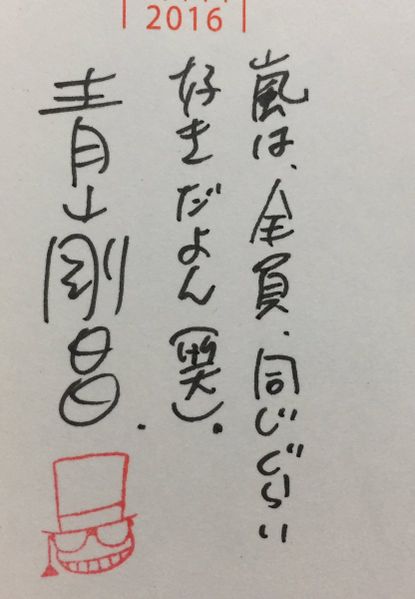 2016
嵐は、全員、同じぐらい
好きだよん(笑)。
青山剛昌.